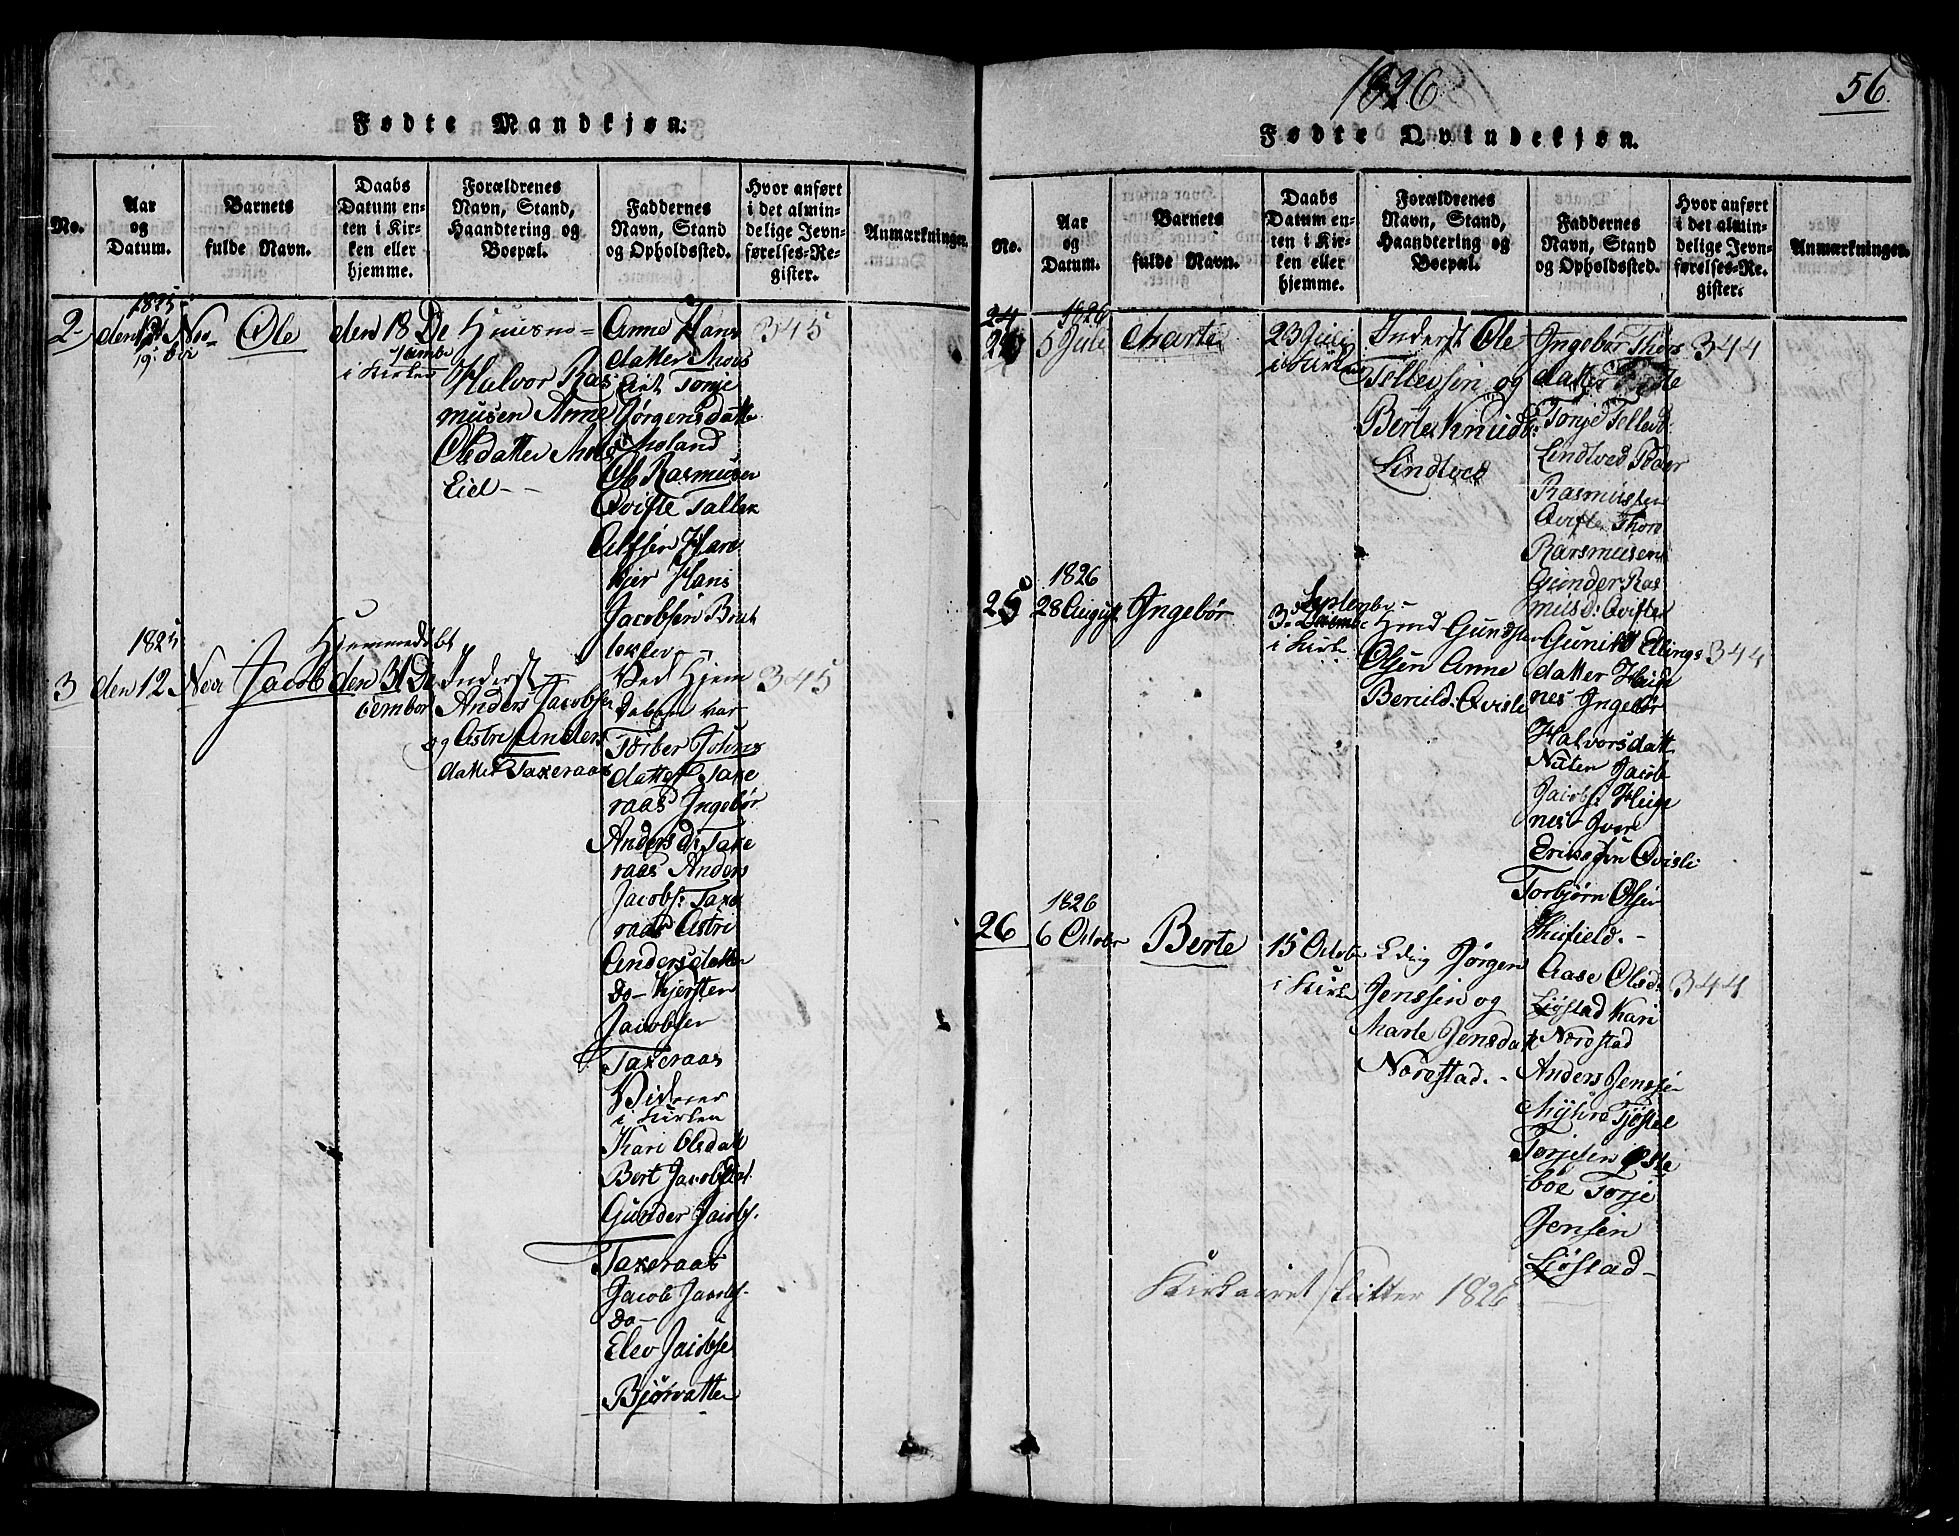 Fødte Mandkjøn.
No.
Aar
og
Datum.
Barnets
fulde Navn.
Daabs
Datum en-
ten i Kir-
ken eller
hjemme.
Forældrenes
Navn, Stand,
Haandtering og
Boepæl.
Faddernes
Navn, Stand
og Opholdssted.
Hvor anført
i det almin-
delige Jevn-
førelses-Re-
gister.
Anmærkninger.
2
1825
Nov
Ole
den 18 De
i Kirken
Huusm-
Halvor Ras
musen Anne
Olsdatter Moes
Eid
Anne Hans
datter Moes
Eid Tonje
Jørgensdatt
Moland
Ole Rasmusen
Qvifte Tallak
Alfsen Hane
Hans
Jacobsen
345
3
1825
den 12 Nov
Jacob
Hjemmedøbt
den 31 De
cember
Inderst
Anders Jacobsen
og Astri Anders
datter Taxeraas
Ved Hjem
Daben var
Torber Johns
datter Taxe
raas Ingebør
Anders d: Taxe
raas Anders
Jacobs: Taxe
raas Astri
Andersdatter
Do- Kjersten
Jacobsen
Taxeraas
i Kirken
Kari Olsdatt
Bert Jacobsdat
Gunder Jacobs.
Taxeraas
Jacob Jacobs.
Do-
Elev Jacobse
Bjørvatten
345
1826
56.
Fødte Qvindekjøn.
No.
Aar
og
Datum.
Barnets
fulde Navn.
Daabs
Datum en-
ten i Kir-
ken eller
hjemme.
Forældrenes
Navn, Stand,
Haandtering og
Boepæl.
Faddernes
Navn, Stand
og Opholdssted.
Hvor anført
i det almin-
delige Jevn-
førelses-Re-
gister.
Anmærkninger.
24
1826
5 Juli
Marte
23 Juli
i Kirken
Inderst Ole
Tellevsen og
Berte Knudsd:
Lindtved
Ingebør Thors
datter
Tonje Tellevd:
Lindtved Peder
Rasmussen
Qvifte Thore
Rasmusen
Gunder Ras
musd: Qvifte
344
25
1826
28 August
Ingebør
Septemb.
3
i Kirk
Gmd Gunder
Olsen Anne
Berulfd. Qvisli
Gunild Ellings
datter Heim
nes Ingebør
Halvorsdatt
Nuten Jacob
Jacobs: Heig
nes- Iver
Ericksen Qvisli
Torbjørn Olsen
344
26
1826
6 Octobr
Berte
15 Octobr
i Kirke
Jørgen
Jenssen og
Marte Jensdatt
Norestad.
Aase Olsd:
Liøstad Kari
Norestad
Anders Jensse
Myhre Tjøstel
Torjesen Øste
bøe Torje
Jensen
Liøstad-
344
Kirkaaret slutter 1826